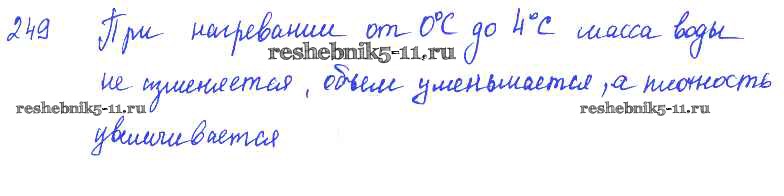 249 При нагревании от 0°C до 4°C масса воды
reshebnik5-11.ru
не изменяется, объем уменьшается, а плотность
reshebnik5-11.ru reshebnik5-11.ru
увеличивается